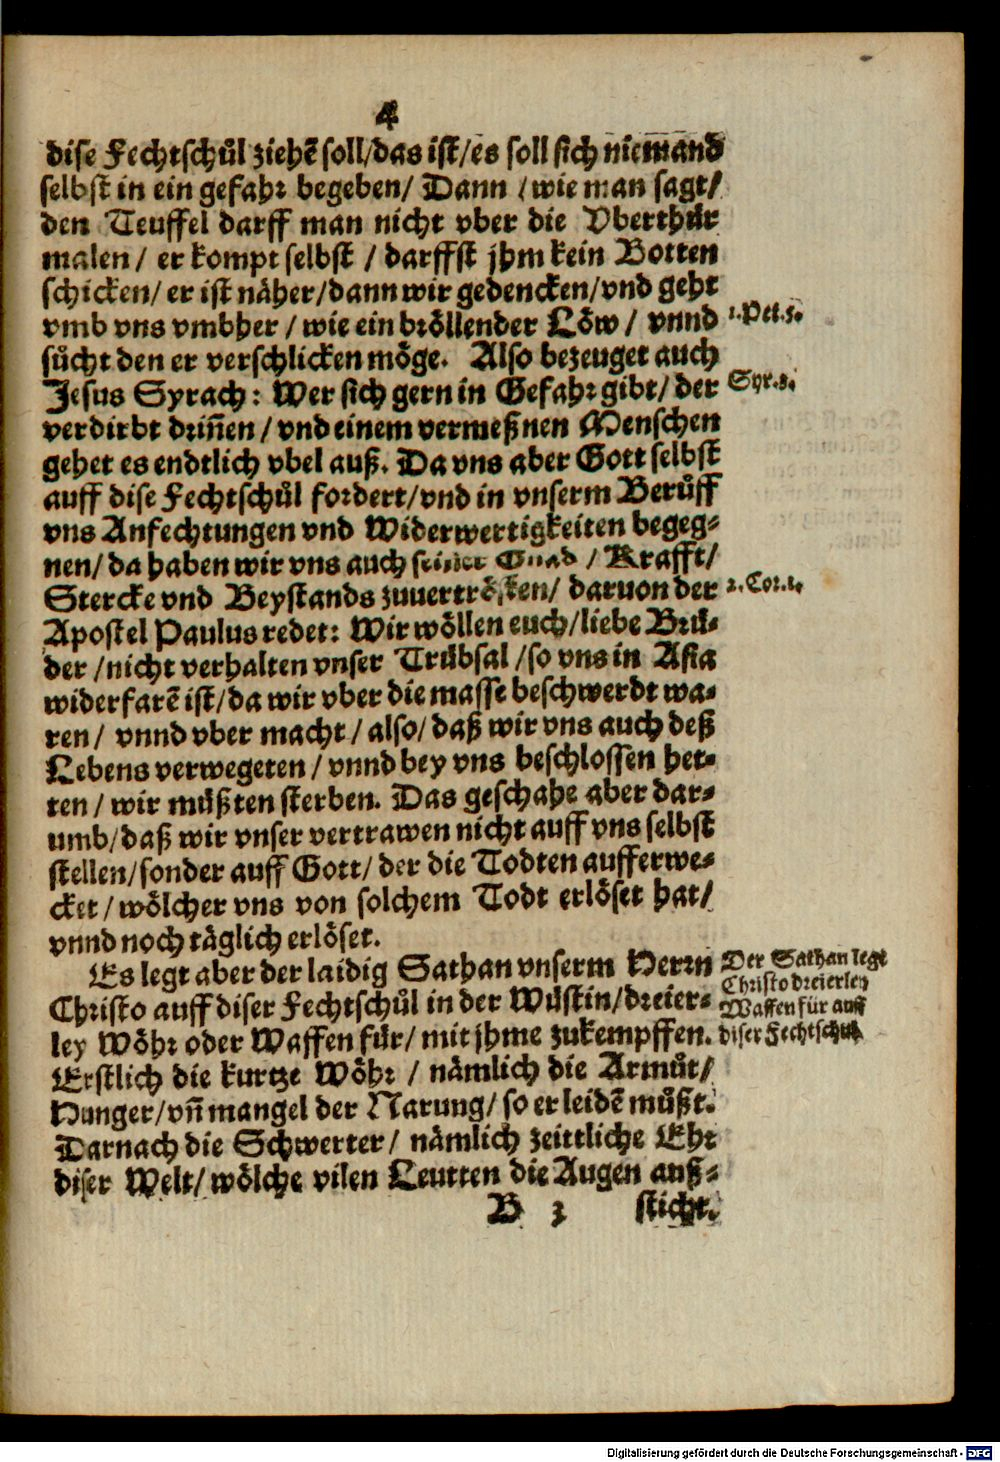 4
dise Fechtschůl ziehẽ soll/das ist/es soll sich niemand
selbst in ein gefahr begeben/ Dann / wie man sagt/
den Teuffel darff man nicht vber die Vberthür
malen/ er kompt selbst / darffst jhm kein Botten
schicken/ er ist näher/dann wir gedencken/vnd geht
vmb vns vmbher / wie ein bröllender Löw / vnnd
sůcht den er verschlicken möge. Also bezeuget auch
Jesus Syrach: Wer sich gern in Gefahr gibt/ der
verdirbt driñen / vnd einem vermeßnen Menschen
gehet es endtlich vbel auß. Da vns aber Gott selbst
auff dise Fechtschůl fordert/vnd in vnserm Berůff
vns Anfechtungen vnd Widerwertigkeiten begeg-
nen/ da haben wir vns auch seiner Gnad / Krafft/
Stercke vnd Beystands zuuertrösten/ daruon der
Apostel Paulus redet: Wir wöllen euch/liebe Brü-
der /nicht verhalten vnser Trübsal /so vns in Asia
widerfarẽ ist/da wir vber die masse beschwerdt wa-
ren/ vnnd vber macht / also/ daß wir vns auch deß
Lebens verwegeten / vnnd bey vns beschlossen het-
ten / wir můßten sterben. Das geschahe aber dar-
umb/daß wir vnser vertrawen nicht auff vns selbst
stellen/sonder auff Gott/ der die Todten aufferwe-
cket / wölcher vns von solchem Todt erlöset hat/
vnnd noch täglich erlöset.
Es legt aber der laidig Sathan vnserm Herrn
Christo auff diser Fechtschůl in der Wüstin/dreier-
ley Wöhr oder Waffen für/ mit jhme zukempffen.
Erstlich die kurtze Wöhr / nämlich die Armůt/
Hunger/vñ mangel der Narung/ so er leidẽ můßt.
Darnach die Schwerter/ nämlich zeittliche Ehr
diser Welt/ wölche vilen Leutten die Augen auß-
B 3 sticht.
1.Pet.5.
Syr.3.
2.Cor.1.
Der Sathan legt
Christo dreierley
Waffen für auff
diser Fechtschul.
Digitalisierung gefördert durch die Deutsche Forschungsgemeinschaft - DFG